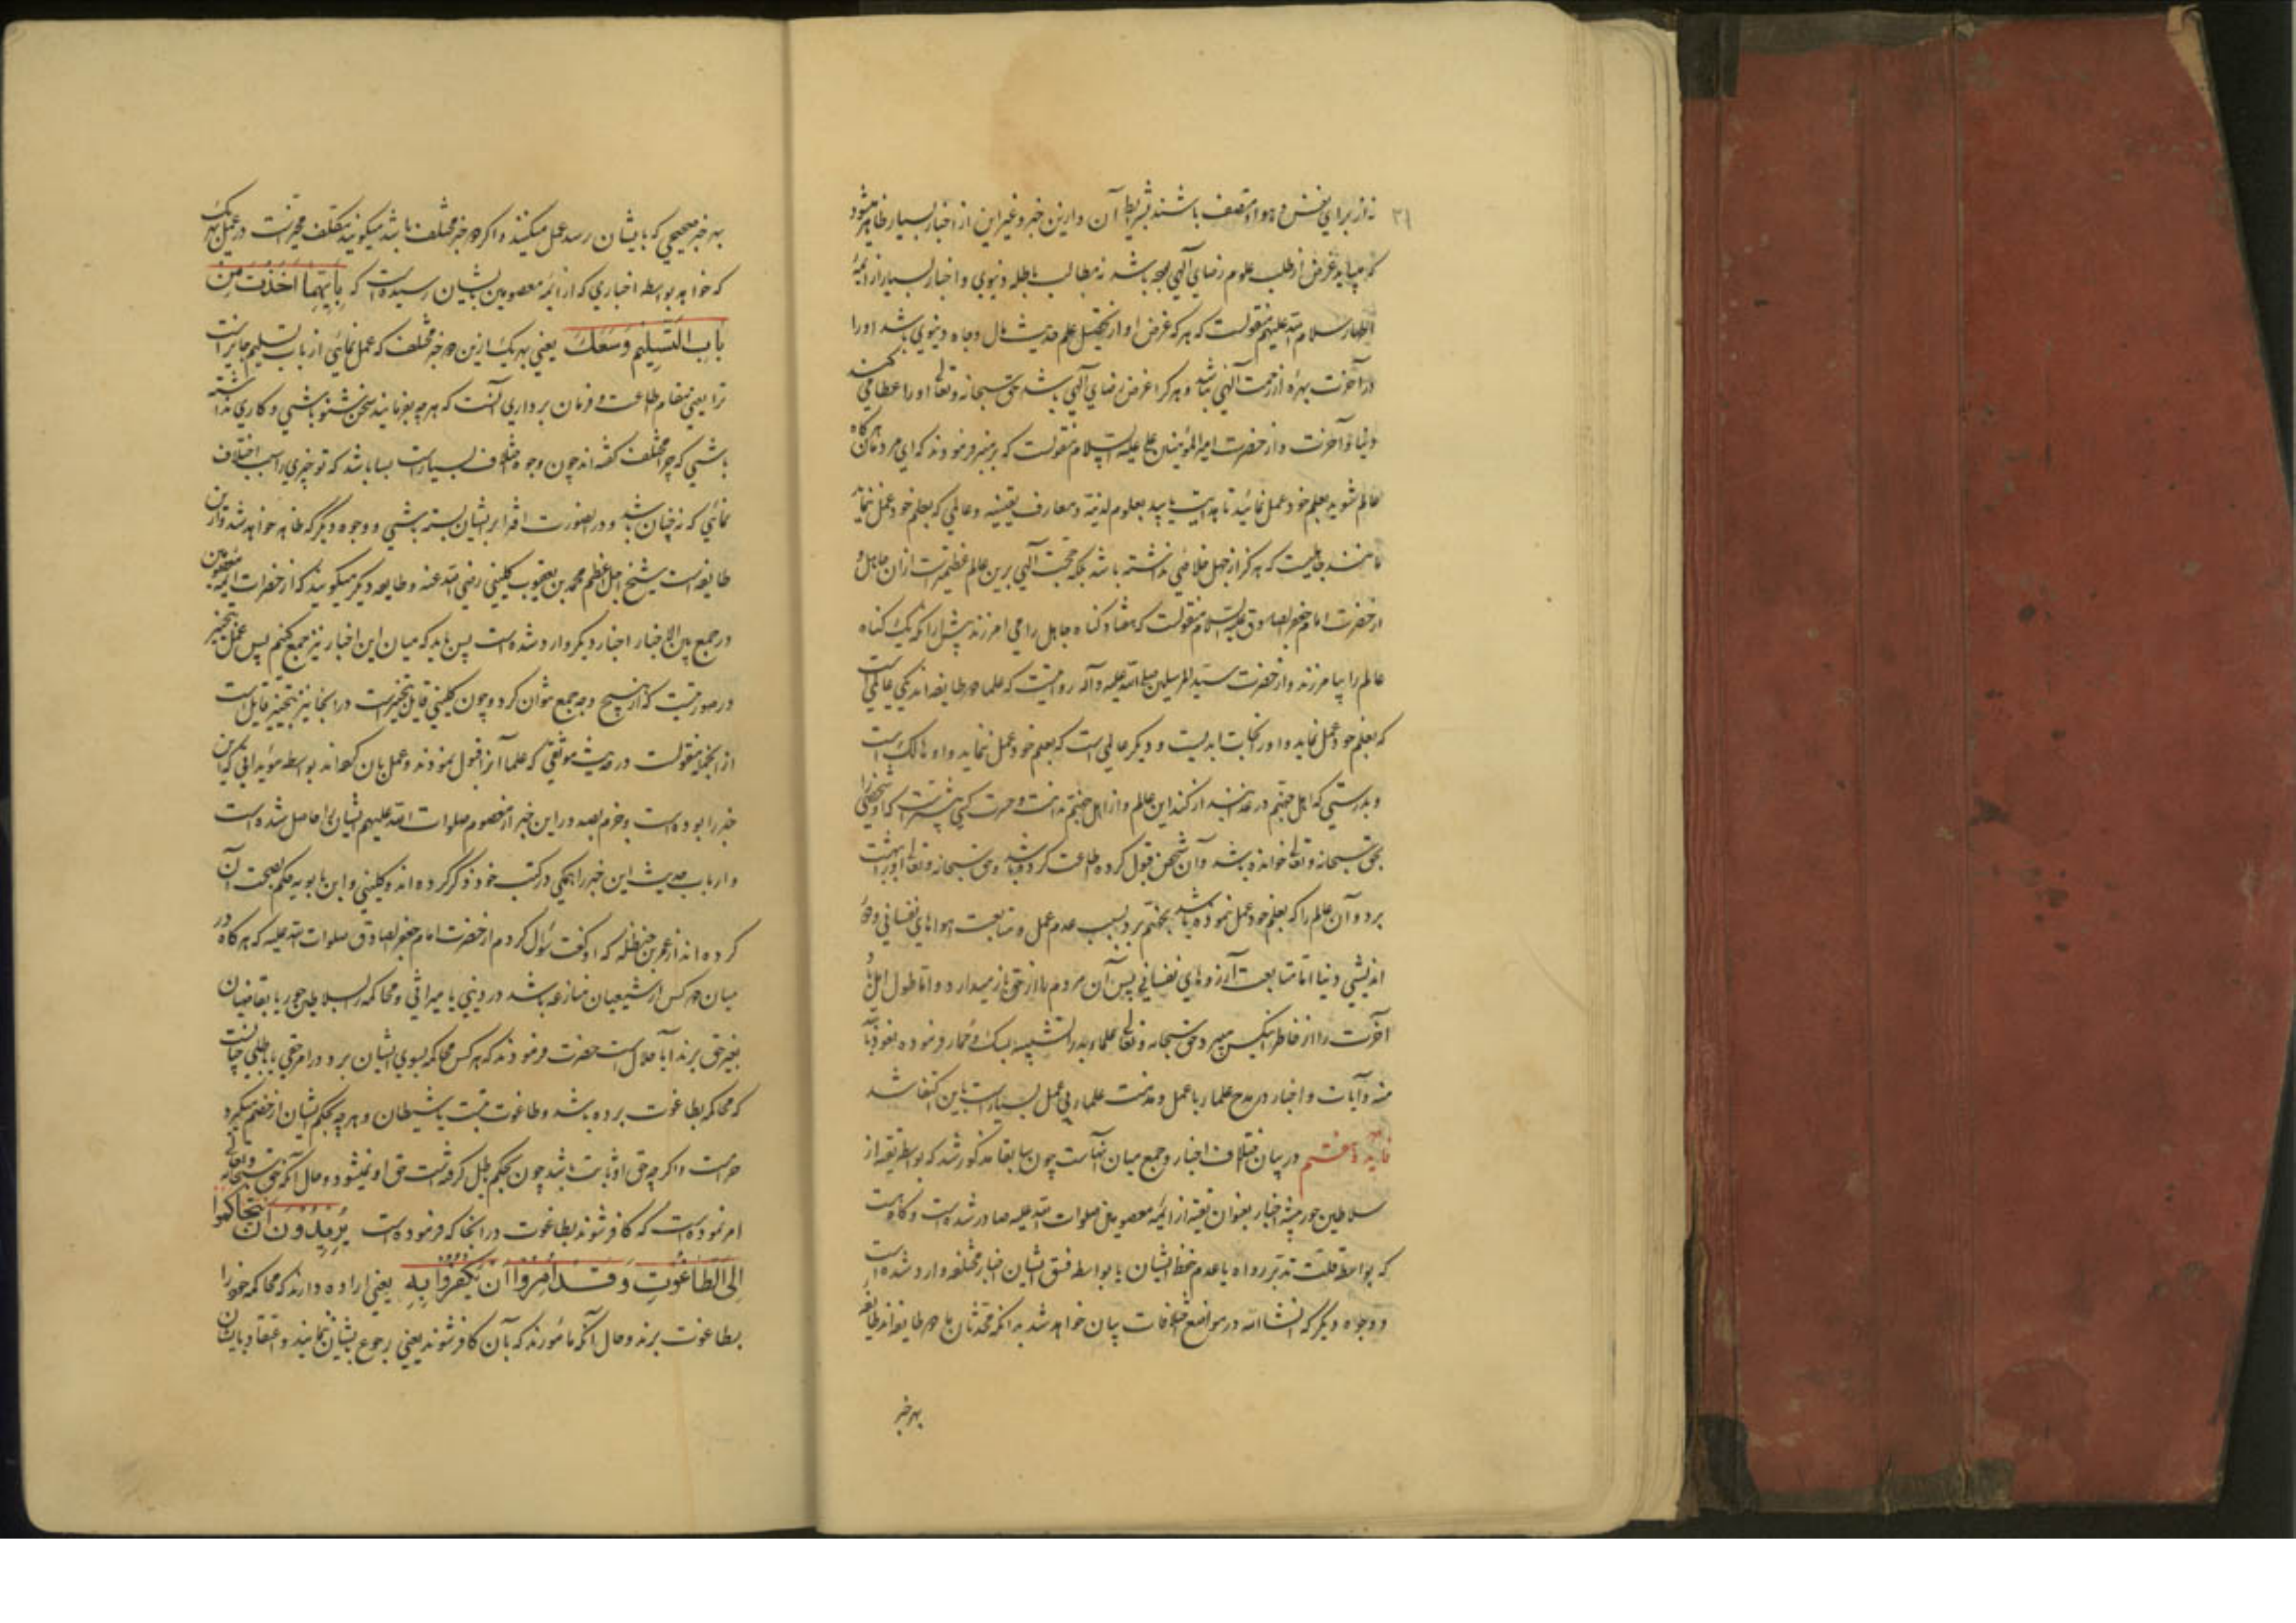 نه از برای نفس و هوا و متصف باشند بشرایط آن و ازین خبر و غیر این از اخبار بسیار ظاهر میشود
که میباید غرض از طلب علوم رضای آلهی بوده باشد نه مطالب باطله دنیوی و اخبار بسیار از ائمهٔ
اطهار سلام الله علیهم منقولست که هر که غرض او از تحصیل علم حدیث مال و جاه دنیوی باشد او را
در آخرت بهرهٔ از رحمت آلهی نباشد و هر کرا غرض رضای آلهی باشد حق سبحانه و تعالی او را عطا می کند
دنیا و آخرت و از حضرت امیر المؤمنین علی علیه السلام منقولست که بر منبر فرمودند که ای مردمان هر گاه
عالم شوید بعلم خود عمل نمائید تا هدایت یابید بعلوم لدنیه و معارف یقینیه و عالمی که بعلم خود عمل ننماید
مانند جاهلیست که هرگز از جهل خلاصی نداشته باشد بلکه حجت آلهی برین عالم عظیمترست از آن جاهل و
از حضرت امام جعفر الصادق علیه السلام منقولست که هفتاد گناه جاهل را می امرزند پیش از آنکه یک گناه
عالم را بیامرزند و از حضرت سید المرسلین صلی الله علیه و آله روایتست که علما دو طایفه اند یکی عالمی است
که بعلم خود عمل نماید و او را نجات ابدیست و دیگر عالمی است که بعلم خود عمل ننماید و او هالک است
و بدرستی که اهل جهنم در عذابند از گند این عالم و از اهل جهنم ندامت و حسرت کسی بیشترست که او شخصی را
بحق سبحانه و تعالی خوانده باشد و آن شخص قبول کرده اطاعت کرده باشد و حق سبحانه و تعالی او را ببهشت
برد و آن عالم را که بعلم خود عمل ننموده باشد بجهنم برد بسبب عدم عمل و متابعت هواهای نفسانی و دور
اندیشی دنیا اما متابعت آرزوهای نفسانی پس آن مردم را از حق باز میدارد و اما طول امل
آخرت را از خاطر میبرد و حق سبحانه و تعالی علماء بد را تشبیه بسگ و حمار فرموده نعوذ بالله
منه و آیات و اخبار در مدح علماء با عمل و مذمت علماء بی عمل بسیارست باین اکتفا شد
فایده هفتم در بیان اختلاف اخبار و جمع میان آنهاست چون سابقا مذکور شد که بواسطه تقیه از
سلاطین جور همیشه اخبار بعنوان تقیه از ائمه معصومین صلوات الله علیه صادر شده است و گاه هست
که بواسطه قلت تدبر رواه یا عدم حفظ ایشان یا بواسطه فسق ایشان اخبار مختلفه وارد شده است
و وجوه دیگر که انشاء الله در مواضع اختلافات بیان خواهد شد بدانکه محدثان ما دو طایفه اند طایفه
بهر خبر
بهر خبر صحیحی که بایشان رسد عمل میکنند و اگر دو خبر مختلف باشد میگویند مکلف مخیرست در عمل بهر یک
که خواهد بواسطه اخباری که از ائمه معصومین بایشان رسیده است که بِاَیِّهِمَا اَخَذْتَ مِنْ
بَابِ التَّسْلِیمِ وَسَعَكَ یعنی بهر یک ازین دو خبر مختلف که عمل نمائی از باب تسلیم جایز است
ترا یعنی مقام اطاعت و فرمان برداری آنست که هر چه بفرمایند سخن شنو باشی و کاری نداشته
باشی که چرا مختلف گفته اند چون وجوه اختلاف بسیارست بسا باشد که تو چیزی را سبب اختلاف
نمائی که نه چنان باشد و در اینصورت افترا بر ایشان بسته باشی و وجوه دیگر که ظاهر خواهد شد و ازین
طایفه است شیخ اجل اعظم محمد بن یعقوب کلینی رضی الله عنه و طایفه دیگر میگویند که از حضرات ائمه معصومین
در جمع بین الاخبار اخبار دیگر وارد شده است پس باید که میان این اخبار نیز جمع کنیم پس عمل بتخییر
در صورتیست که از هیچ وجه جمع نتوان کرد و چون کلینی قایل بتخییرست در اینجا نیز بتخییر قایل است
از انجمله منقولست در حدیث موثقی که علما آنرا قبول نموده اند و عمل بان کرده اند بواسطه مؤیداتی که این
خبر را بوده است و جزم بصدور این خبر از معصوم صلوات الله علیهم ایشان را حاصل شده است
و ارباب حدیث این خبر را همگی در کتب خود ذکر کرده اند و کلینی و ابن بابویه حکم بصحت آن
کرده اند از عمر بن حنظله که او گفت سؤال کردم از حضرت امام جعفر الصادق صلوات الله علیه که هر گاه در
میان دو کس از شیعیان منازعه باشد در دینی یا میراثی و محاکمه را بسلاطین جور یا بقاضیان
بغیر حق برند آیا حلال است حضرت فرمودند که هر کس محاکمه بسوی ایشان برد در امر حقی یا باطلی چنانست
که محاکمه بطاغوت برده باشد و طاغوت بت یا شیطان و هر چه بحکم ایشان از خصم میگیرد
حرامست و اگر چه حق او ثابت باشد چون بحکم باطل گرفته است حق او نمیشود و حال آنکه حق سبحانه و تعالی
امر نموده است که کافر شوند بطاغوت در آنجا که فرموده است یُرِیدُونَ اَنْ یَتَحَاکَمُوا
اِلَی الطَّاغُوتِ وَقَدْ اُمِرُوا اَنْ یَکْفُرُوا بِهِ یعنی اراده دارند که محاکمه خود را
بطاغوت برند و حال آنکه مأمورند که بآن کافر شوند یعنی رجوع بایشان ننمایند و اعتقاد بایشان